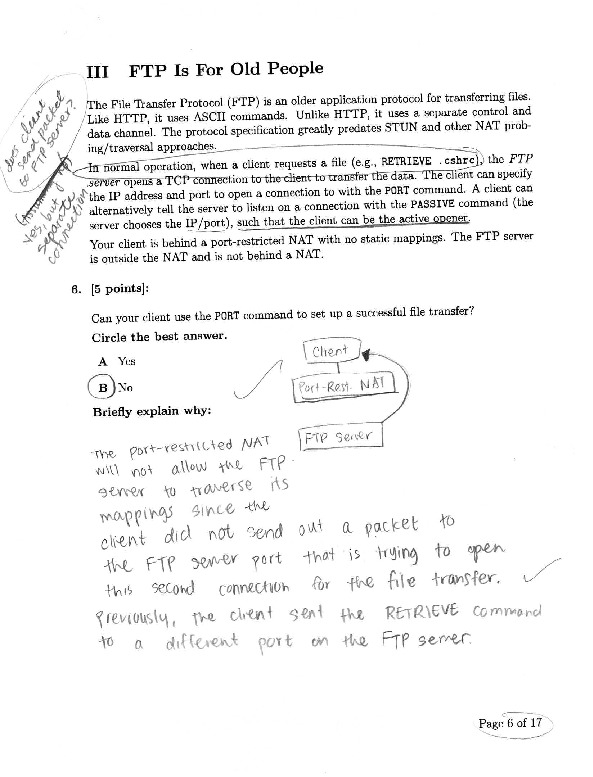 III FTP Is For Old People
does client
send packet
to FTP server?
yes, but
separate
connection
The File Transfer Protocol (FTP) is an older application protocol for transferring files.
Like HTTP, it uses ASCII commands. Unlike HTTP, it uses a separate control and
data channel. The protocol specification greatly predates STUN and other NAT prob-
ing/traversal approaches.
In normal operation, when a client requests a file (e.g., RETRIEVE .cshrc), the FTP
server opens a TCP connection to the client to transfer the data. The client can specify
the IP address and port to open a connection to with the PORT command. A client can
alternatively tell the server to listen on a connection with the PASSIVE command (the
server chooses the IP/port), such that the client can be the active opener.
Your client is behind a port-restricted NAT with no static mappings. The FTP server
is outside the NAT and is not behind a NAT.
6. [5 points]:
Can your client use the PORT command to set up a successful file transfer?
Circle the best answer.
A Yes
B No
Client
Port-Rest. NAT
FTP Server
Briefly explain why:
The port-restricted NAT
will not allow the FTP
server to traverse its
mappings since the
client did not send out a packet to
the FTP server port that is trying to open
this second connection for the file transfer.
Previously, the client sent the RETRIEVE command
to a different port on the FTP server.
Page 6 of 17